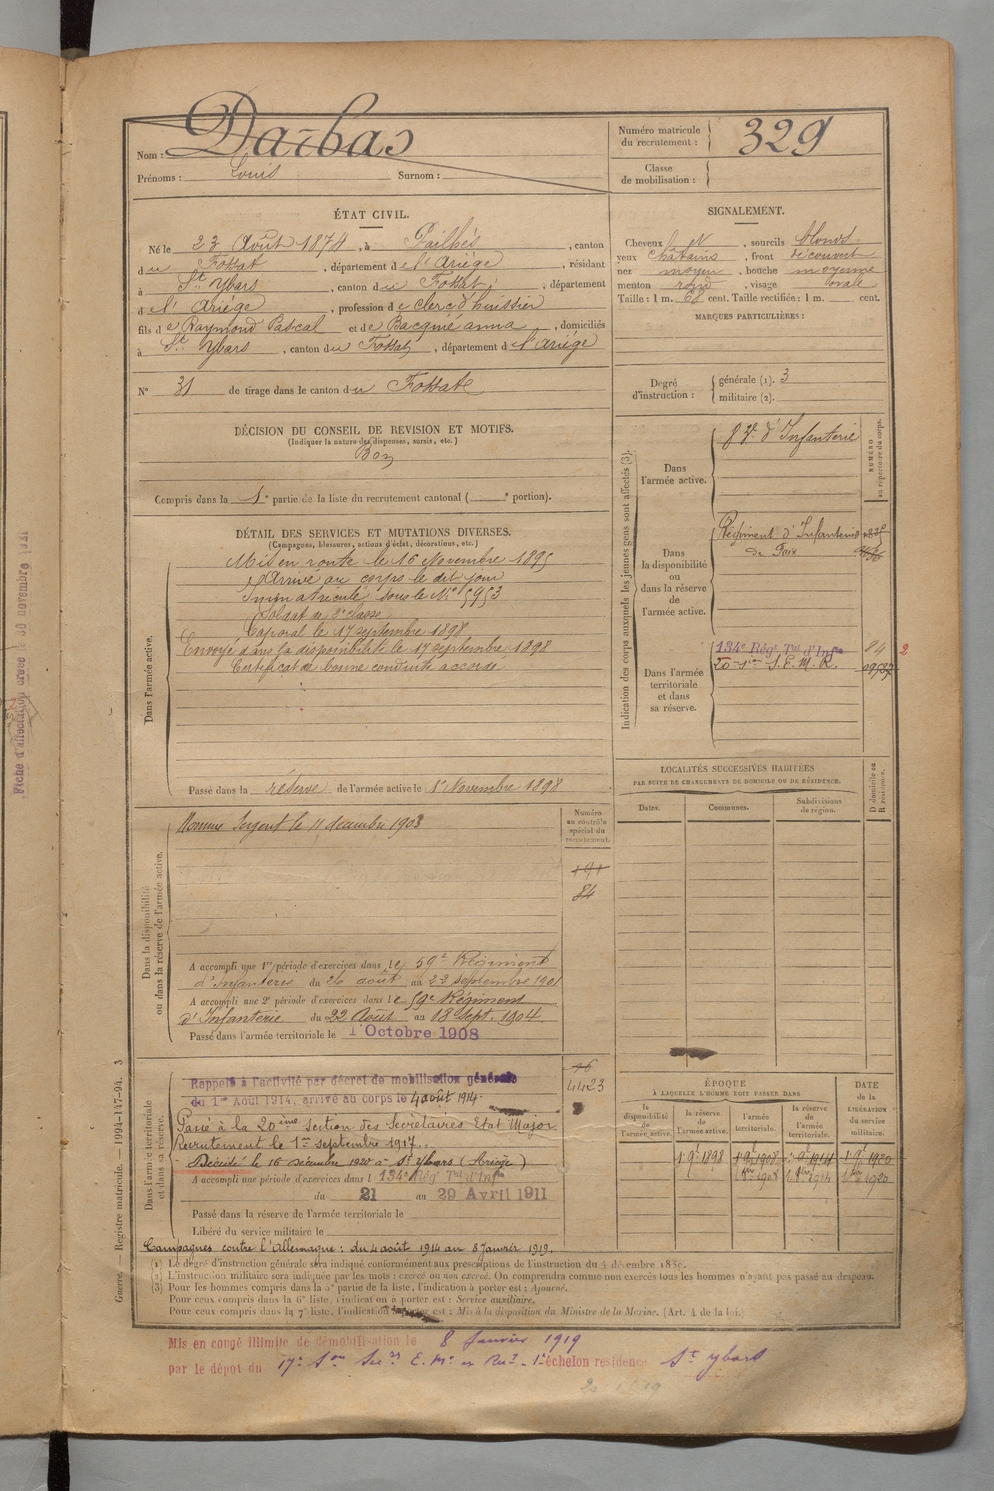 Nom : Darbas
Prénoms : Louis Surnom :
Numéro matricule du recrutement : 329
Classe de mobilisation :
ÉTAT CIVIL.
Né le 23 Août 1874, à Pailhés, canton
du Fossat, département de l'Ariége, résidant
à St Ybars, canton du Fossat, département
de l'Ariége, profession de clerc d'huissier
fils de Raymond Pascal et de Bacquié anna, domiciliés
à St Ybars, canton du Fossat, département de l'ariége
N° 31 de tirage dans le canton du Fossat
DÉCISION DU CONSEIL DE REVISION ET MOTIFS.
(Indiquer la nature des dispenses, sursis, etc.)
Bon
Compris dans la 1e partie de la liste du recrutement cantonal ( e portion).
SIGNALEMENT.
Cheveux , sourcils blonds
yeux châtains, front découvert
nez moyen, bouche moyenne
menton rond, visage ovale
Taille : 1 m. cent. Taille rectifiée : 1 m. cent.
MARQUES PARTICULIÈRES :
Degré d'instruction :
générale (1). 3
militaire (2).
DÉTAIL DES SERVICES ET MUTATIONS DIVERSES.
(Campagnes, blessures, actions d'éclat, décorations, etc.)
Dans l'armée active.
Mis en route le 16 Novembre 1895
Arrivé au corps le dit jour
Immatriculé sous le N° 5953
Soldat de 2e classe
Caporal le 17 septembre 1898
Envoyé dans la disponibilité le 17 septembre 1898
Certificat de bonne conduite accordé
Passé dans la réserve de l'armée active le 1er Novembre 1898
Indication des corps auxquels les jeunes gens sont affectés (3).
NUMÉRO au répertoire du corps.
Dans l'armée active.
d'Infanterie
Dans la disponibilité ou dans la réserve de l'armée active.
Régiment d'Infanterie
de Foix
Dans l'armée territoriale et dans sa réserve.
134e Régt Tal d'Infie 84 2
20e Son S.E.M.R.
LOCALITÉS SUCCESSIVES HABITÉES
PAR SUITE DE CHANGEMENTS DE DOMICILE OU DE RÉSIDENCE.
Dates. Communes. Subdivisions de région. D domicile ou R résidence.
Dans la disponibilité ou dans la réserve de l'armée active.
Numéro au contrôle spécial du recrutement.
Nommé Sergent le 11 décembre 1903
191
84
A accompli une 1re période d'exercices dans le 59e Régiment
d'Infanterie du 26 août au 22 septembre 1901
A accompli une 2e période d'exercices dans le 59e Régiment
d'Infanterie du 22 Août au 18 Sept. 1904
Passé dans l'armée territoriale le 1 Octobre 1908
Dans l'armée territoriale et dans sa réserve.
Rappelé à l'activité par décret de mobilisation générale
du 1er Août 1914, arrivé au corps le 4 août 1914
4423
Passé à la 20ième section des Secrétaires Etat Major
Recrutement le 1er septembre 1917.
Décédé le 16 décembre 1920 à St Ybars (Ariège)
A accompli une période d'exercices dans l 134e Rég Tal d'Infie
du 21 au 29 Avril 1911
Passé dans la réserve de l'armée territoriale le
Libéré du service militaire le
Campagnes contre l'Allemagne : du 4 août 1914 au 8 Janvier 1919.
ÉPOQUE
À LAQUELLE L'HOMME DOIT PASSER DANS
la disponibilité de l'armée active. la réserve de l'armée active. l'armée territoriale. la réserve de l'armée territoriale.
DATE de la LIBÉRATION du service militaire.
1 9bre 1898 1 9bre 1908 1 9bre 1914 1 9bre 1920
1908 1914 1920
(1) Le degré d'instruction générale sera indiqué conformément aux prescriptions de l'instruction du 4 décembre 1889.
(2) L'instruction militaire sera indiquée par les mots : exercé ou non exercé. On comprendra comme non exercés tous les hommes n'ayant pas passé au drapeau.
(3) Pour les hommes compris dans la 5e partie de la liste, l'indication à porter est : Ajourné.
Pour ceux compris dans la 6e liste, l'indication à porter est : Service auxiliaire.
Pour ceux compris dans la 7e liste, l'indication à porter est : Mis à la disposition du Ministre de la Marine. (Art. 4 de la loi.)
Guerre. — Registre matricule. — 1994-147-94. 3
Mis en congé illimité de démobilisation le 8 Janvier 1919
par le dépot du 17e Son 1er échelon residence St ybars
Fiche d'affectation créée le 30 novembre